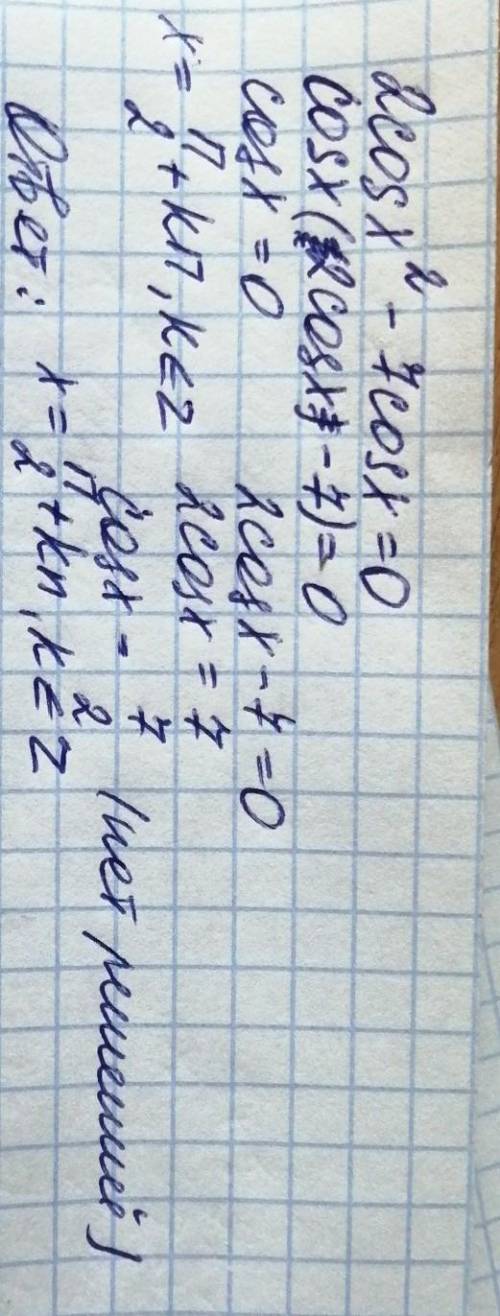 2cosx² - 7cosx = 0
cosx(2cosx - 7) = 0
cosx = 0 2cosx - 7 = 0
x = π/2 + kπ, k ∈ Z 2cosx = 7
cosx = 7/2 (нет решений)
Ответ: x = π/2 + kπ, k ∈ Z